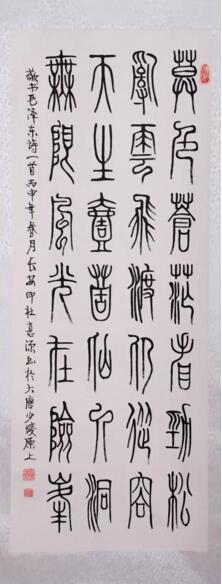 莫色蒼茫看勁松
亂雲飛渡仍從容
天生壹箇仙人洞
無限風光在險峯
敬书毛泽东诗一首丙申年春月长安印社源书於大唐少陵原上